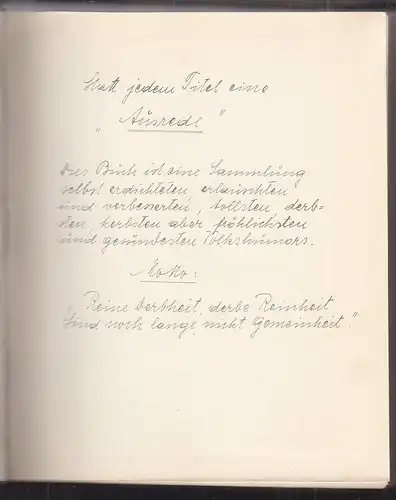 Statt jedem Titel eine
„ Ausrede "
Dies Buch ist eine Sammlung
selbst erdichteten, erlauschten
und verbesserten, tollsten, derb-
sten, herbsten aber fröhlichsten
und gesündesten Volkshumors.
Motto:
„ Reine Derbheit, derbe Reinheit
Sind noch lange nicht Gemeinheit."